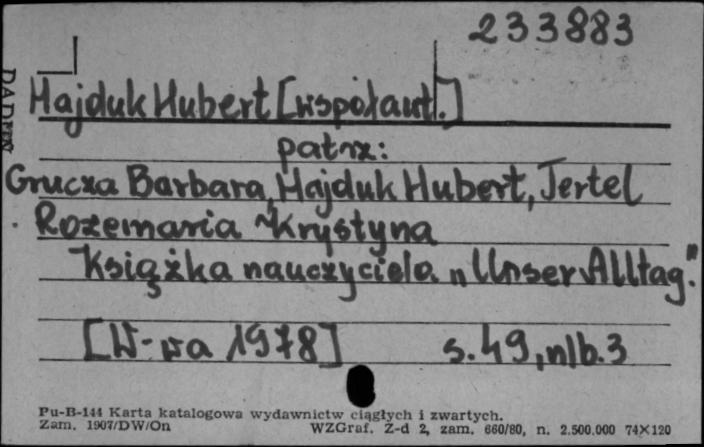 233883
Hajduk Hubert [współaut.]
patrz:
Grucza Barbara, Hajduk Hubert, Jertel
Rozemaria Krystyna
Książka nauczyciela „Unser Alltag".
[W-wa 1978] s. 49, nlb. 3
Pu-B-144 Karta katalogowa wydawnictw ciągłych i zwartych.
Zam. 1907/DW/On WZGraf. Z-d 2, zam. 660/80, n. 2.500.000 74X120